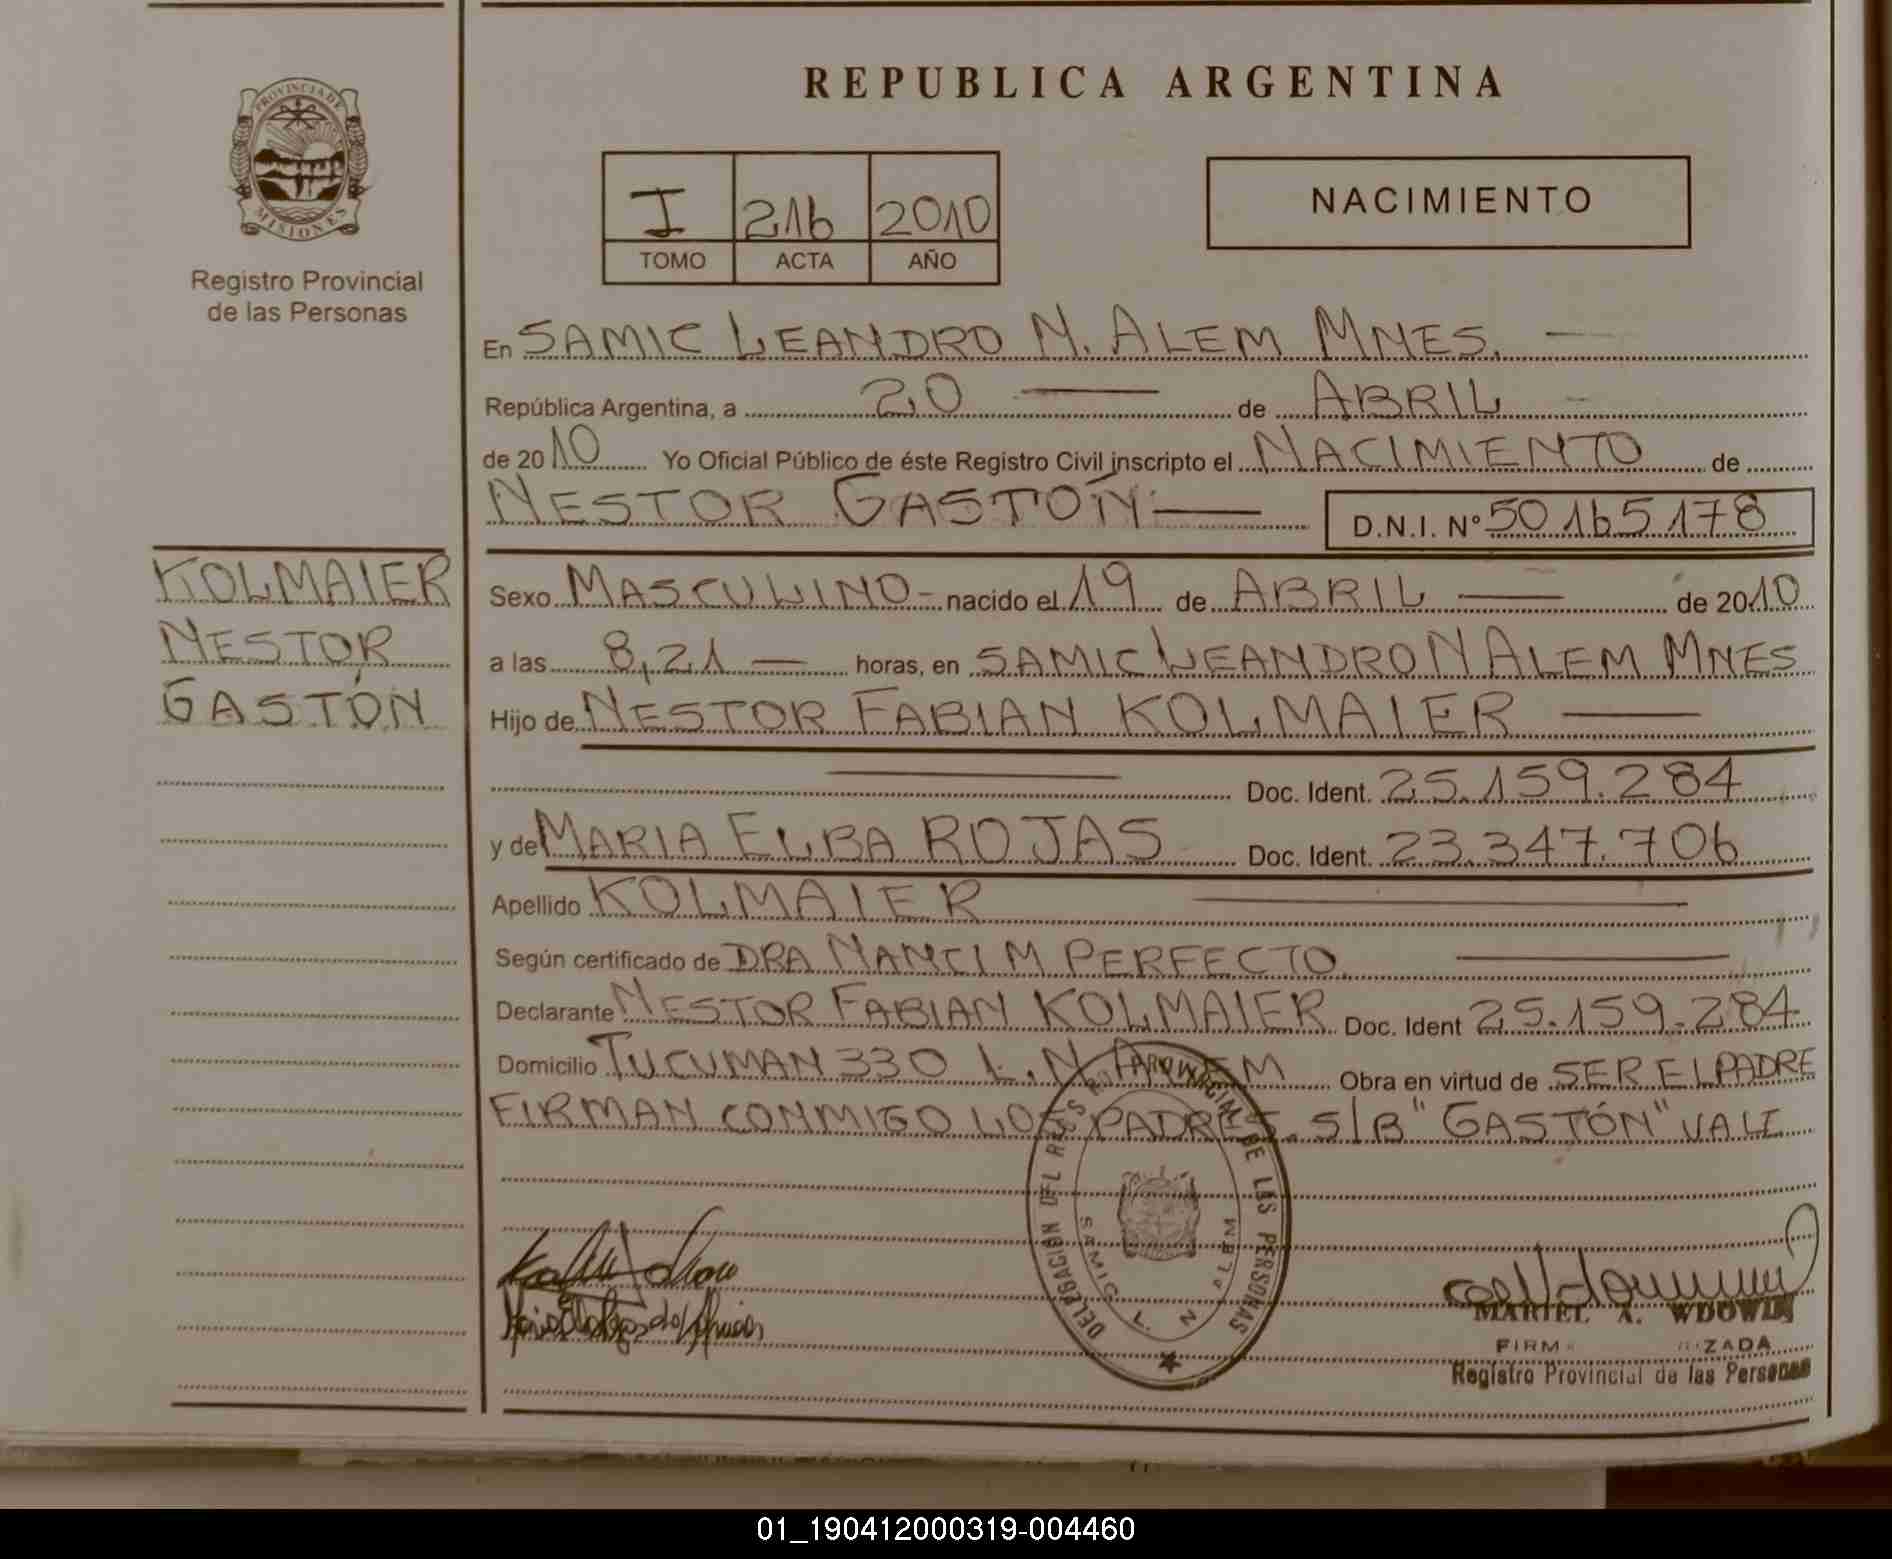 PROVINCIA DE
MISIONES
Registro Provincial
de las Personas
REPUBLICA ARGENTINA
I 216 2010
TOMO ACTA AÑO
NACIMIENTO
En SAMIC LEANDRO N. ALEM MNES.
República Argentina, a 20 de ABRIL
de 2010 Yo Oficial Público de éste Registro Civil inscripto el NACIMIENTO de
NESTOR GASTÓN D.N.I. N° 50165178
KOLMAIER
NESTOR
GASTÓN
Sexo MASCULINO - nacido el 19 de ABRIL de 2010
a las 8,21 horas, en SAMIC LEANDRO N ALEM MNES
Hijo de NESTOR FABIAN KOLMAIER
Doc. Ident. 25.159.284
y de MARIA ELBA ROJAS Doc. Ident. 23.347.706
Apellido KOLMAIER
Según certificado de DRA NANCI M PERFECTO
Declarante NESTOR FABIAN KOLMAIER Doc. Ident 25.159.284
Domicilio TUCUMAN 330 L.N. ALEM Obra en virtud de SER EL PADRE
FIRMAN CONMIGO LOS PADRES. S/B "GASTÓN" VALE
DELEGACION DEL REGISTRO PROVINCIAL DE LAS PERSONAS
SAMIC L. N. ALEM
MARIEL A. WDOWIN
FIRMA AUTORIZADA
Registro Provincial de las Personas
01_190412000319-004460